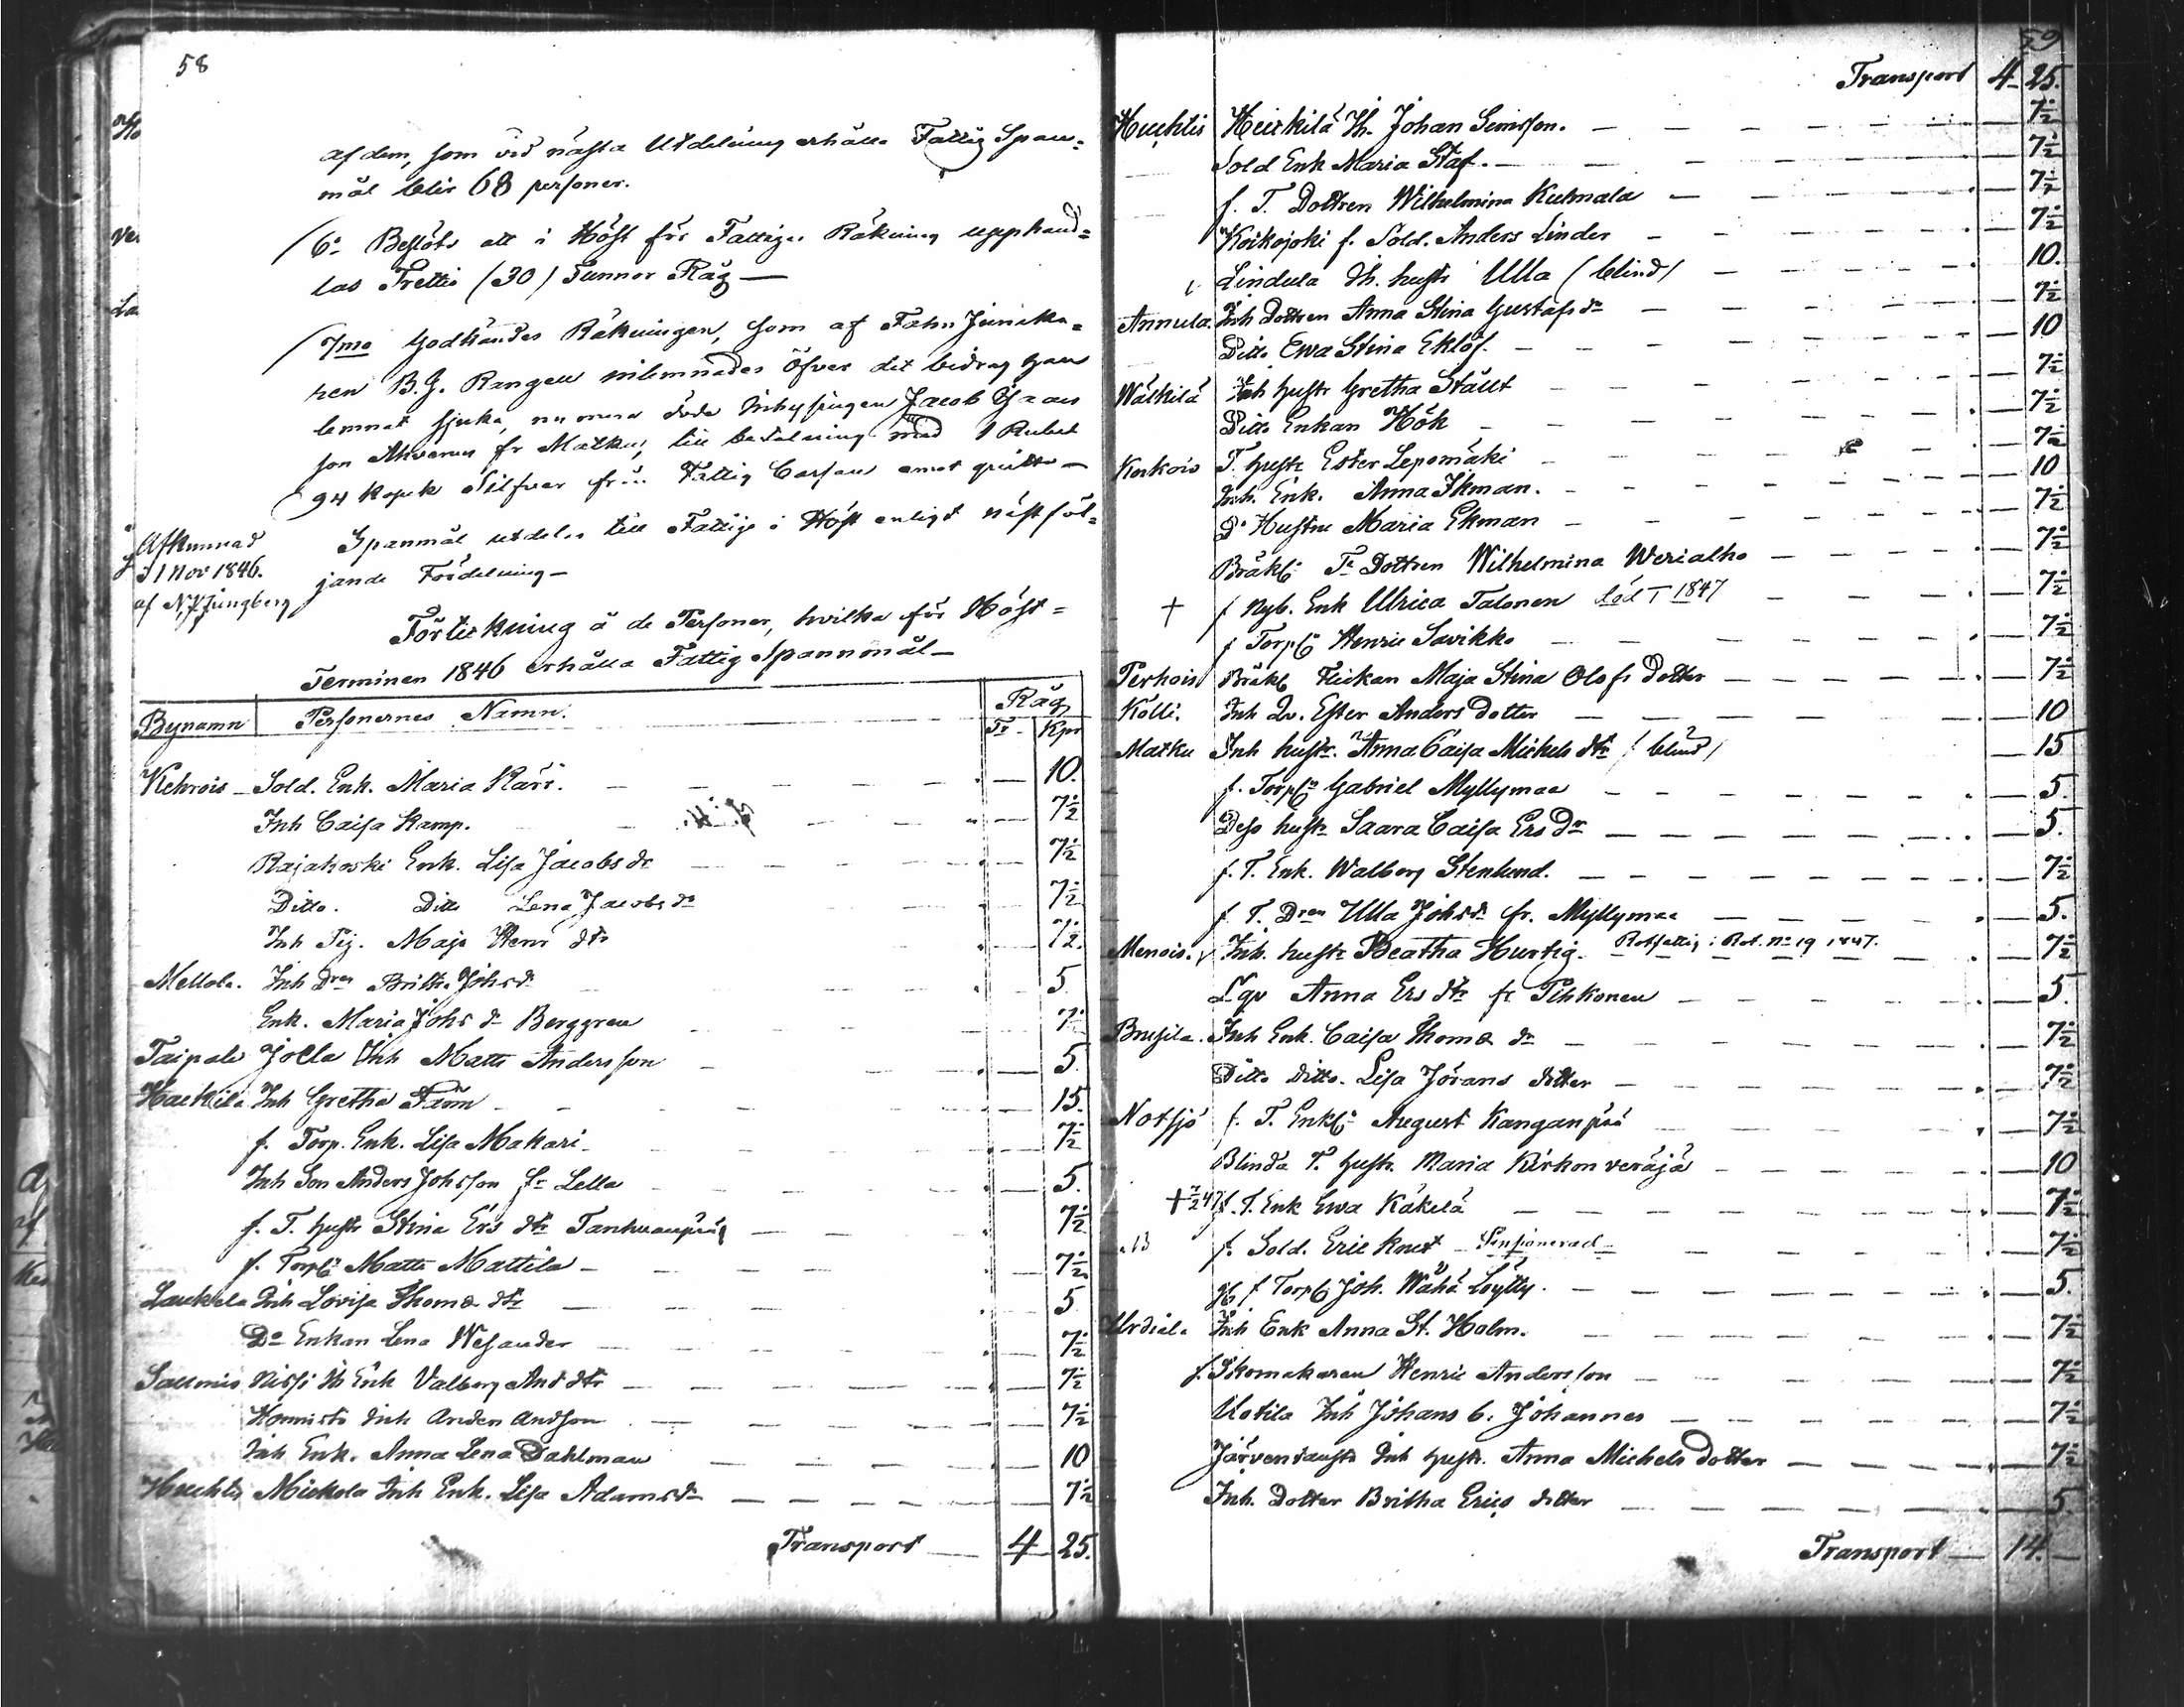 58
af dem, som vid nästa Utdelning erhålla Fattig Span=
mål blir 68 personer.
6: Beslöts att i Höst för Fattiges Räkning upphand=
las Trettio (30) Tunnor Råg —
7mo Godkändes Räkningen, som af Fahnjunka=
ren B.G. Rangell inlemnades öfver det bidrag han
lemnat sjuka, nu mera döde Inhysingen Jacob Isaacs
son Ahvenus fr Matku, till betalning med 1 Rubel
94 Kopek Silfver från Fattig Cassan emot quitto —
Afkunnad
d 1 Nov 1846.
af N. Ljungberg
Spanmål utdeles till Fattige i Höst enligt nästföl=
jande Fördelning —
Förteckning å de Personer, hvilka för Höst=
Terminen 1846 erhålla Fattig Spannmål —
Bynamn Personernes Namn. Råg
Tr Kpr
Kehrois — Sold. Enk. Maria Karr. — 10.
Inh Caisa Kamp. 7½
Rajakoski Enk. Lisa Jacobs dr — 7½
Ditto. Ditto Lena Jacobs dr 7½
Inh Pig. Maja Henr dtr 7½
Mellola. Inh Dren Britha Johs dr 5.
Enk. Maria Johs dr Berggren 7½
Taipale Jolla Inh Matts Andersson 5.
Inh Gretha Färm 15.
f. Torp. Enk. Lisa Makari — 7½
Inh Son Anders Johsson fr Lella 5.
f. T. hustr Stina Ers dtr Tanhuanpää — 7½
f. Torp: Matts Mattila — 7½
Laukela Inh Lovisa Thomæ dtr — 5
Do Enkan Lena Wesander — 7½
Nissi Ih Enk Valborg And dtr — 7½
Inh Anders Andson — 7½
Inh Enk. Anna Lena Dahlman 10
Huchtis Mickola Inh Enk. Lisa Adams dr — 7½
Transport — 4 25.
59
Transport 4 25.
Huchtis Heikkilä Ih. Johan Simsson. — 7½
Sold Enk Maria Staf. — 7½
f. T. Dottren Wilhelmina Kulmala — 7½
Koikojoki f. Sold. Anders Linder — 7½
Lindula Ih. hustr Ulla (blind) — 10.
Annula. Inh Dottren Anna Stina Gustafs dr — 7½
Ditto Ewa Stina Eklöf. — 10
Wälkilä Inh hustr Gretha Stållt — 7½
Ditto Enkan Hök — 7½
Korkois T. hustr Ester Lepomäki — 7½
Inh. Enk. Anna Ikman. — 10
Do Hustru Maria Ekman — 7½
Bräkl: Tr Dottren Wilhelmina Werialho — 7½
† f Nyb. Enk Ulrica Talonen död 1847 — 7½
f Torp: Henric Savikko — 7½
Perhois Bräkl Flickan Maja Stina Olofs Dotter — 7½
Kolli. Inh Qv. Ester Anders dotter — 10
Matku Inh hustr. Anna Caisa Michels dtr (blind) — 15
f. Torp: Gabriel Myllymaa — 5.
Dess hustr Saara Caisa Ers Dr — 5.
f. T. Enk. Walborg Stenlund. — 7½
f. T. Dren Ulla Johs dr fr. Myllymaa — 5.
Menois. Inh. hustr Beatha Hurtig. Rotfattig i Rot. No 19 1847. 7½
Anna Ers dtr fr Pihkonen — 5.
Brusila. Inh Enk. Caisa Thomæ dr — 7½
Ditto ditto. Lisa Jörans dotter — 7½
Notsjö f. T. Enkl: August Kanganpää 7½
Blinda T. hustr. Maria Kirkonveräjä — 10
† 7/2 47 f. T. Enk Ewa Käkelä — 7½
f. Sold. Eric Knut Pensionerad — 7½
f Torp Joh. Wähä Löytty. — 5.
Urdiala Inh Enk Anna St. Holm. — 7½
f. Skomakaren Henric Andersson — 7½
Uotila Inh Johans b. Johannes — 7½
Järventausta Inh hustr. Anna Michels dotter — 7½
Inh. Dotter Britha Erics dotter — 5.
Transport — 14. —